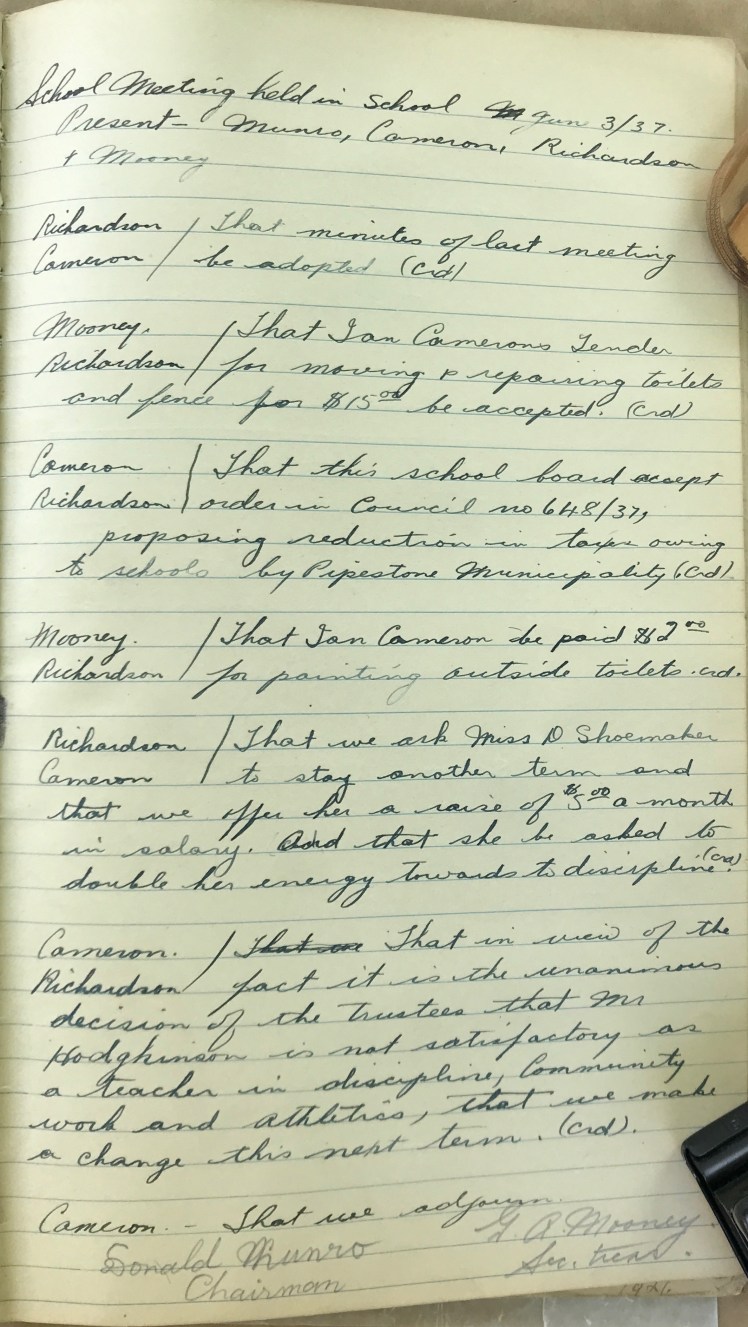 School Meeting held in School Jun 3/37.
Present - Munro, Cameron, Richardson
+ Mooney
Richardson / That minutes of last meeting
Cameron / be adopted (Crd)
Mooney. / That Ian Camerons Tender
Richardson / for moving & repairing toilets
and fence for $15.00 be accepted. (Crd)
Cameron / That this school board accept
Richardson / order in Council no 648/37,
proposing reduction in taxes owing
to schools by Pipestone Municipality (Crd).
Mooney. / That Ian Cameron be paid $2.00
Richardson / for painting outside toilets. crd.
Richardson / That we ask Miss D Shoemaker
Cameron / to stay another term and
that we offer her a raise of $5.00 a month
in salary. And that she be asked to
double her energy towards to discipline. (Crd)
Cameron. / That we That in view of the
Richardson / fact it is the unanimous
decision of the trustees that Mr
Hodgkinson is not satisfactory as
a teacher in discipline, Community
work and athletics, that we make
a change this next term. (Crd).
Cameron. - That we adjourn.
Donald Munro G. A. Mooney.
Chairman Sec. treas.